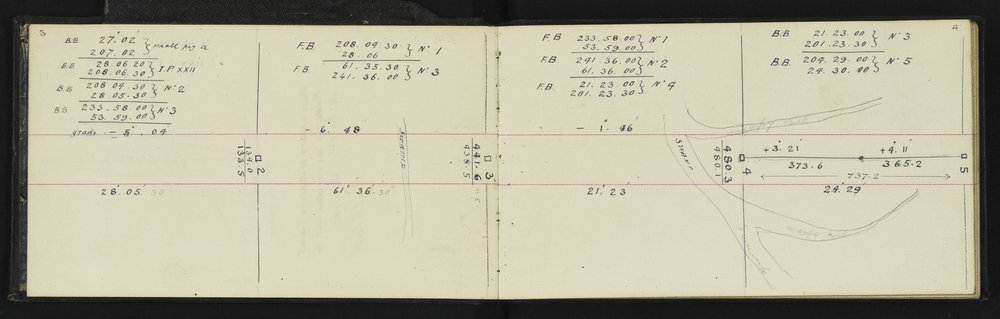 3
B.B 27° 02'
207. 02
B.B 28. 06. 20
208. 06. 30 I.P XXII
B.B 208 04. 30 N° 2
28. 05. 30
B.B 233. 58. 00 N° 3
53. 59. 00
grade - 5° . 04'
134.0
133.5
2
28° 05' 30
F.B. 208. 04. 30 N° 1
28. 06
F.B 61. 35. 30 N° 3
241. 36. 00
- 6° 48'
441.6
438.5
3
61° 36' 30
F.B 233. 58. 00 N° 1
53. 59. 00
F.B 241 36. 00 N° 2
61. 36. 00
F.B. 21. 23. 00 N° 4
201. 23. 30
- 1° 46'
SWAMP
480.3
480.1
4
21° 23'
4
B.B 21. 23. 00 N° 3
201. 23. 30
B.B. 204. 29. 00 N° 5
24. 30. 00
swampy
+3° 21'
+4° 11'
373.6
365.2
737.2
5
24° 29'